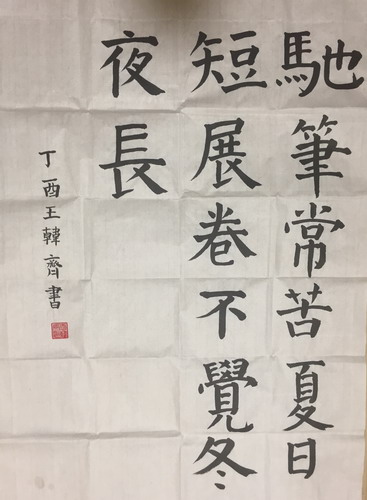 馳筆常苦夏日
短展卷不覺冬
夜長
丁酉王韓齊書